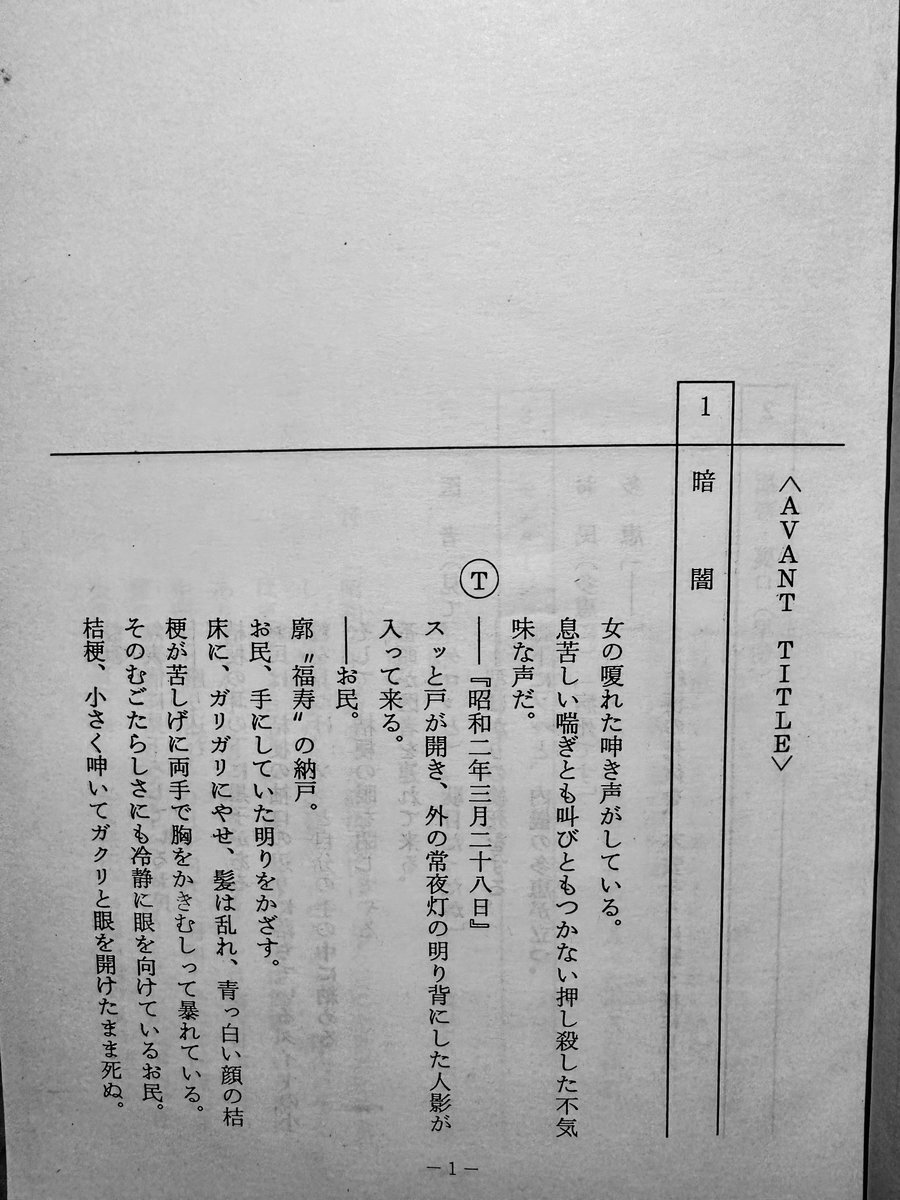 〈AVANT TITLE〉
1 暗闇
女の嗄れた呻き声がしている。
息苦しい喘ぎとも叫びともつかない押し殺した不気
味な声だ。
Ⓣ――『昭和二年三月二十八日』
スッと戸が開き、外の常夜灯の明り背にした人影が
入って来る。
――お民。
廓〝福寿〟の納戸。
お民、手にしていた明りをかざす。
床に、ガリガリにやせ、髪は乱れ、青っ白い顔の桔
梗が苦しげに両手で胸をかきむしって暴れている。
そのむごたらしさにも冷静に眼を向けているお民。
桔梗、小さく呻いてガクリと眼を開けたまま死ぬ。
－1－